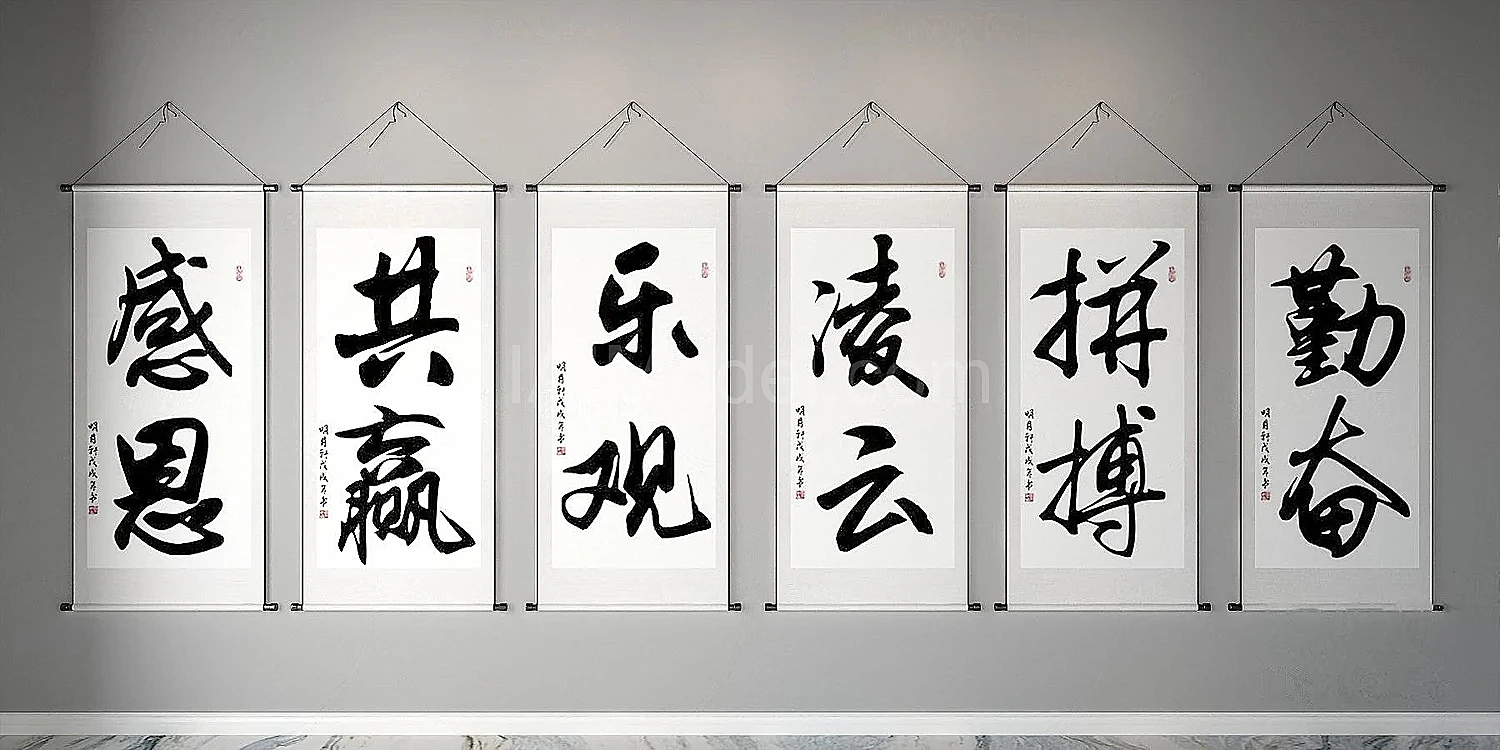 感恩
明月轩戊戌年书
共赢
明月轩戊戌年书
乐观
明月轩戊戌年书
凌云
明月轩戊戌年书
拼搏
明月轩戊戌年书
勤奋
明月轩戊戌年书